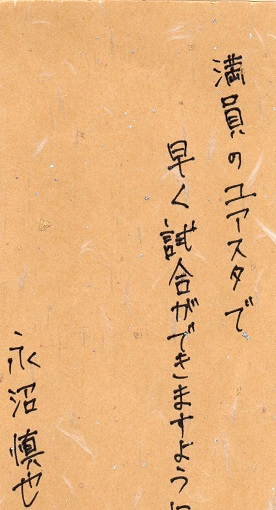 満員のユアスタで
早く試合ができますように
永沼慎也